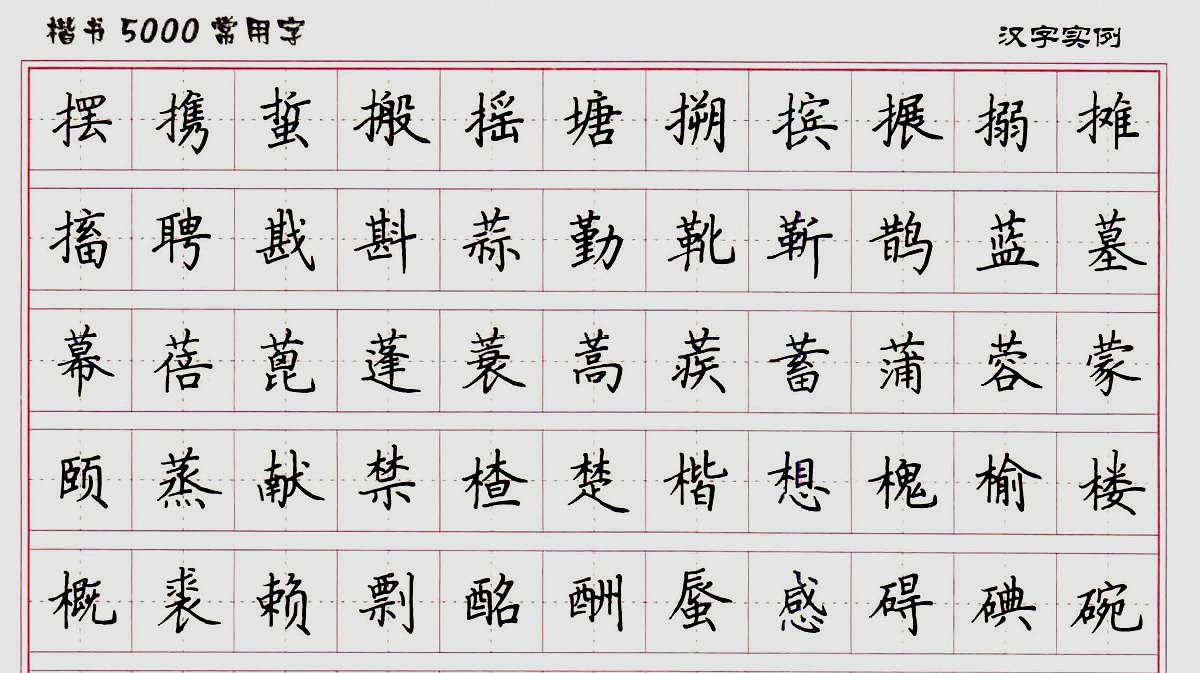 楷书5000常用字 汉字实例
摆携蜇搬摇塘搠摈搌搦摊
搐聘戡斟蒜勤靴靳鹊蓝墓
幕蓓蓖蓬蓑蒿蒺蓄蒲蓉蒙
颐蒸献禁楂楚楷想槐榆楼
概裘赖剽酩酬蜃感碍碘碗